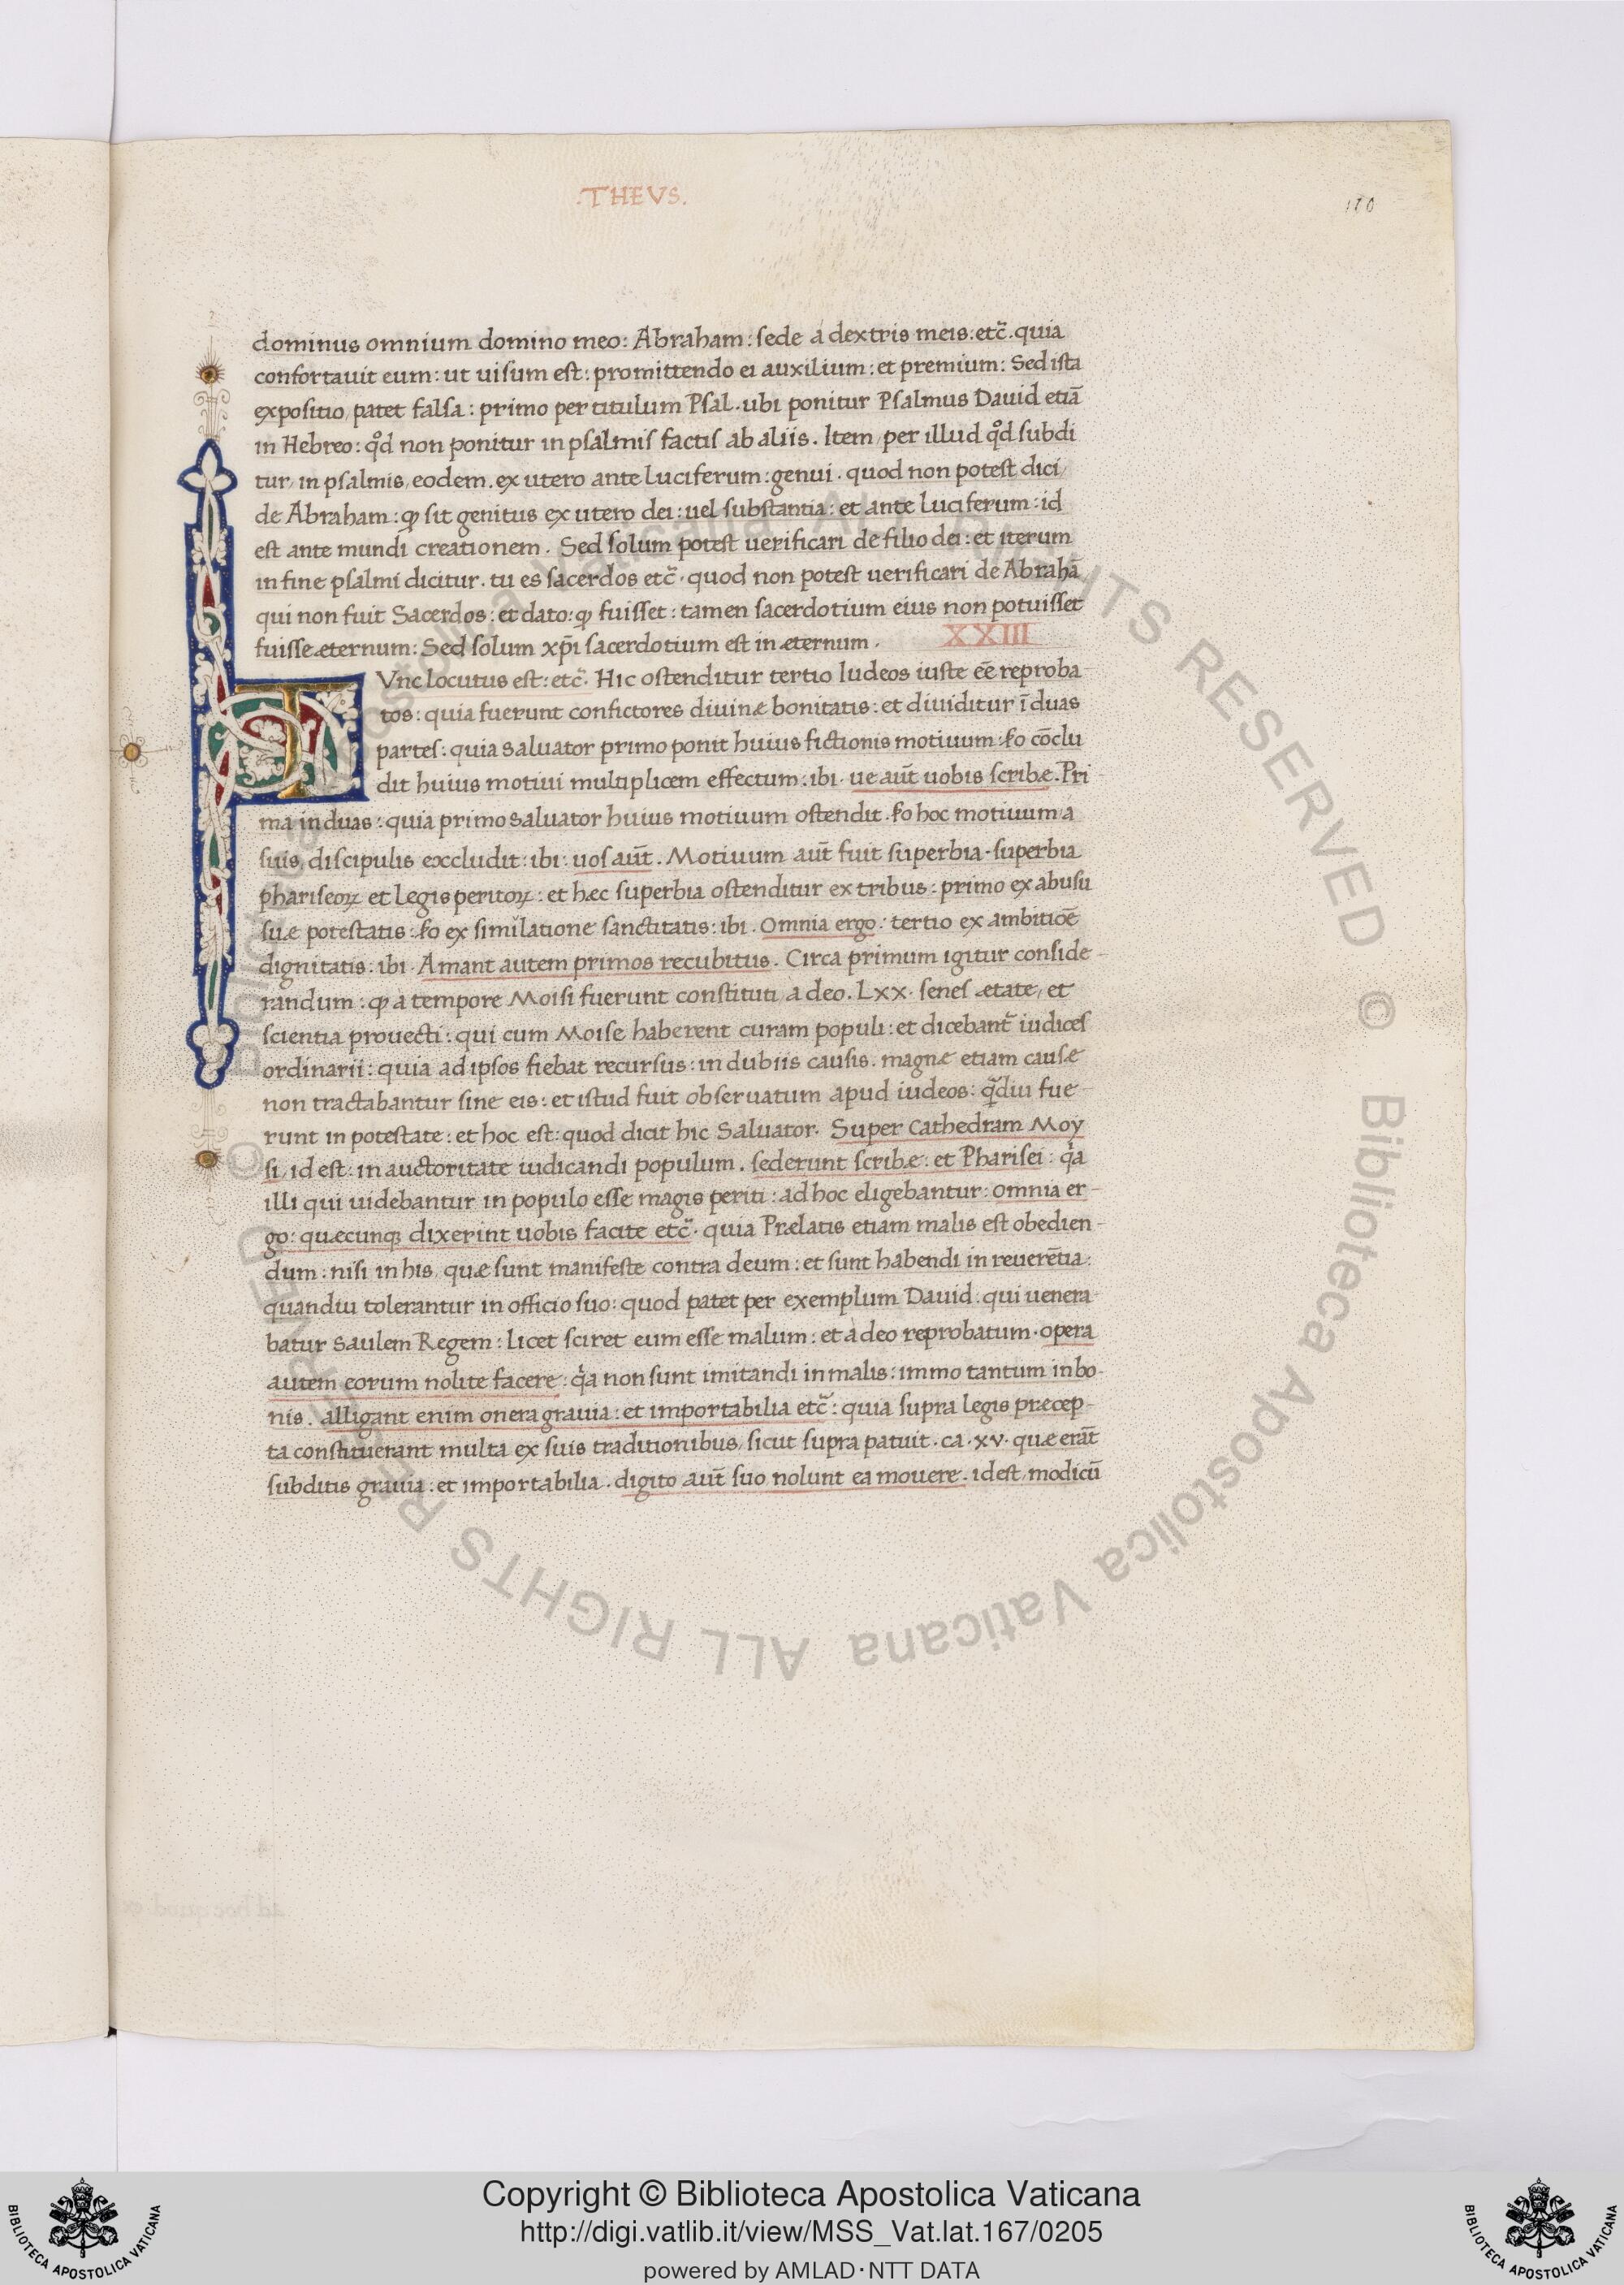 .THEVS.
110
dominus omnium domino meo: Abraham: sede a dextris meis: etc̃. quia
confortauit eum: ut uisum est: promittendo ei auxilium: et premium: Sed ista
expositio, patet falsa: primo per titulum Psal. ubi ponitur Psalmus Dauid etiā
in Hebreo: qd̊ non ponitur in psalmis factis ab aliis. Item, per illud qd̊ subdi
tur, in psalmis, eodem. ex utero ante Luciferum: genui. quod non potest dici,
de Abraham: ꝙ sit genitus ex utero dei: uel substantia: et ante Luciferum: id
est ante mundi creationem. Sed solum potest uerificari de filio dei: et iterum
in fine psalmi dicitur. tu es sacerdos etc̃. quod non potest uerificari de Abrahā
qui non fuit Sacerdos: et dato: ꝙ fuisset: tamen sacerdotium eius non potuisset
fuisse æternum: Sed solum xp̄i sacerdotium est in æternum.
XXIII
TVnc locutus est: etc̃. Hic ostenditur tertio Iudeos iuste eē reproba
tos: quia fuerunt confictores diuinæ bonitatis: et diuiditur ī duas
partes: quia saluator primo ponit huius fictionis motiuum: ſo cōclu
dit huius motiui multiplicem effectum: ibi. ue aūt uobis scribæ. Pri-
ma in duas: quia primo saluator huius motiuum ostendit. ſo hoc motiuum a
suis, discipulis exccludit: ibi: uos aūt. Motiuum aūt fuit superbia. superbia
phariseoꝝ et Legis peritoꝝ: et hæc superbia ostenditur ex tribus: primo ex abusu
suæ potestatis: ſo ex similatione sanctitatis: ibi. Omnia ergo: tertio ex ambitiōe
dignitatis: ibi. Amant autem primos recubitus. Circa primum igitur conside-
randum: ꝙ a tempore Moisi fuerunt constituti, a deo. Lxx. senes ætate, et
scientia prouecti: qui cum Moise haberent curam populi: et dicebant᷑ iudices
ordinarii: quia ad ipsos fiebat recursus: in dubiis causis. magnæ etiam causæ
non tractabantur sine eis: et istud fuit obseruatum apud iudeos: qᷓdiu fue-
runt in potestate: et hoc est: quod dicit hic Saluator. Super Cathedram Moy
si, id est: in auctoritate iudicandi populum. sederunt scribæ: et Pharisei: qᷓa
illi qui uidebantur in populo esse magis periti: ad hoc eligebantur: omnia er-
go: quæcunqꝫ dixerint uobis facite etc̃. quia Prælatis etiam malis est obedien-
dum: nisi in his, quæ sunt manifeste contra deum: et sunt habendi in reuerētia:
quandiu tolerantur in officio suo: quod patet per exemplum Dauid: qui uenera-
batur Saulem Regem: licet sciret eum esse malum: et a deo reprobatum. opera
autem eorum nolite facere: qᷓa non sunt imitandi in malis: immo tantum in bo-
nis. alligant enim onera grauia: et importabilia etc̃: quia supra legis præcep-
ta constituerant multa ex suis traditionibus, sicut supra patuit. ca. xv. quæ erāt
subditis grauia: et importabilia. digito aūt suo nolunt ea mouere. id est, modicū
© Biblioteca Apostolica Vaticana ALL RIGHTS RESERVED © Biblioteca Apostolica Vaticana ALL RIGHTS RESERVED
BIBLIOTECA APOSTOLICA VATICANA
Copyright © Biblioteca Apostolica Vaticana
http://digi.vatlib.it/view/MSS_Vat.lat.167/0205
powered by AMLAD·NTT DATA
BIBLIOTECA APOSTOLICA VATICANA